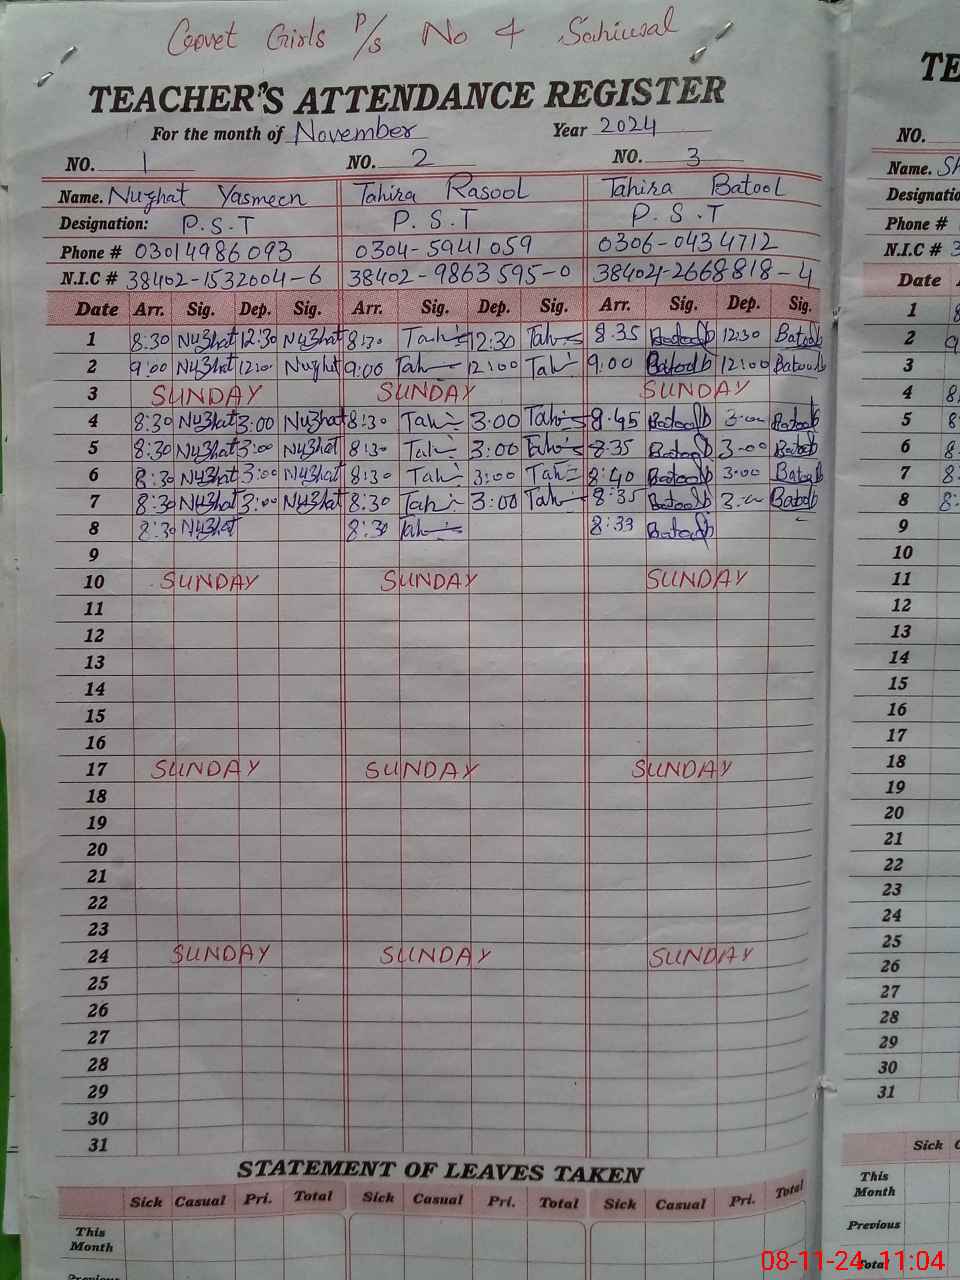 Govet Girls P/S No 4 Sahiwal
TEACHER'S ATTENDANCE REGISTER
For the month of November Year 2024
NO. 1 NO. 2 NO. 3
Name. Nuzhat Yasmeen Tahira Rasool Tahira Batool
Designation: P.S.T P.S.T P.S.T
Phone # 03014986093 0304-5941059 0306-0434712
N.I.C # 38402-1532004-6 38402-9863595-0 38404-2668818-4
Date Arr. Sig. Dep. Sig. Arr. Sig. Dep. Sig. Arr. Sig. Dep. Sig.
1 8:30 Nuzhat 12:30 Nuzhat 8:30 Tah 12:30 Tah 8.35 Batool 12:30 Batool
2 9:00 Nuzhat 12:00 Nuzhat 9:00 Tah 12:00 Tah 9:00 Batool 12:00 Batool
3 SUNDAY SUNDAY SUNDAY
4 8:30 Nuzhat 3:00 Nuzhat 8:30 Tah 3:00 Tah 8.45 Batool 3.00 Batool
5 8:30 Nuzhat 3:00 Nuzhat 8:30 Tah 3:00 Tah 8.35 Batool 3.00 Batool
6 8:30 Nuzhat 3:00 Nuzhat 8:30 Tah 3:00 Tah 8:40 Batool 3.00 Batool
7 8:30 Nuzhat 3:00 Nuzhat 8.30 Tah 3:00 Tah 8:35 Batool 3.00 Batool
8 8:30 Nuzhat 8:30 Tah 8:33 Batool
9
10 SUNDAY SUNDAY SUNDAY
11
12
13
14
15
16
17 SUNDAY SUNDAY SUNDAY
18
19
20
21
22
23
24 SUNDAY SUNDAY SUNDAY
25
26
27
28
29
30
31
STATEMENT OF LEAVES TAKEN
Sick Casual Pri. Total Sick Casual Pri. Total Sick Casual Pri. Total
This Month
Previous
TE
NO.
Name. Sh
Designatio
Phone # 0
N.I.C # 3
Date
1 8
2 9
3
4 8
5 8
6 8
7 8
8 8
9
10
11
12
13
14
15
16
17
18
19
20
21
22
23
24
25
26
27
28
29
30
31
Sick C
This Month
Previous
Total
08-11-24 11:04